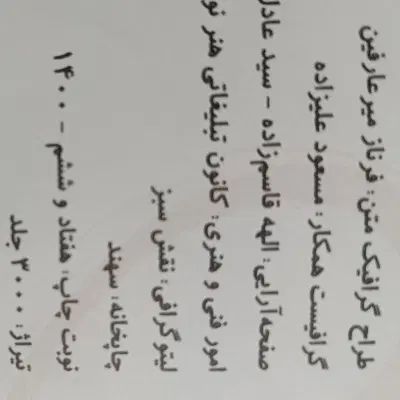 طراح گرافیک متن: فرناز میرعارفین
گرافیست همکار: مسعود علیزاده
صفحه‌آرایی: الهه قاسم‌زاده - سید عادل
امور فنی و هنری: کانون تبلیغاتی هنر نو
لیتوگرافی: نقش سبز
چاپخانه: سهند
نوبت چاپ: هفتاد و ششم - ۱۴۰۰
تیراژ: ۳۰۰۰ جلد